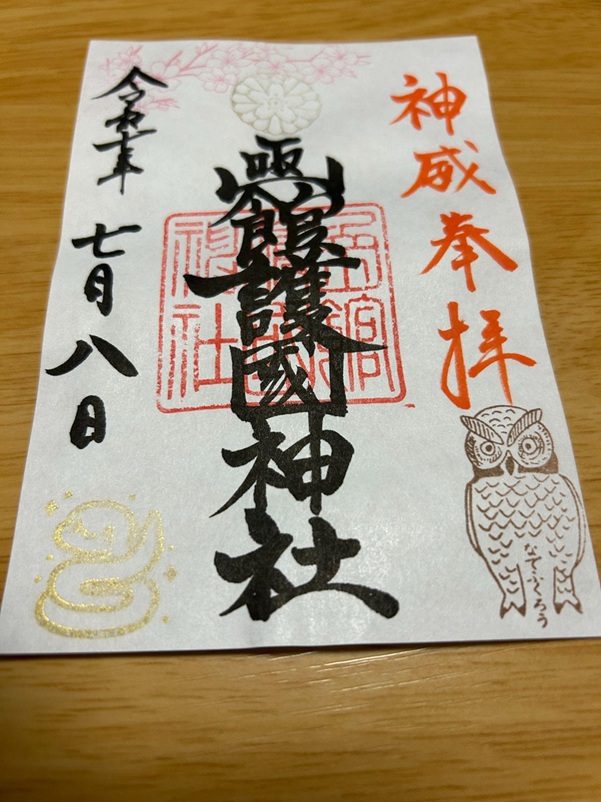 神威奉拝
なでふくろう
凾館護國神社
令和七年
七月八日